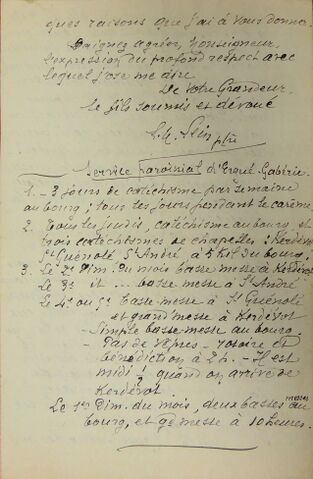 ques raisons que j'ai à vous donner.
Daignez agréer, Monseigneur,
l'expression du profond respect avec
lequel j'ose me dire
De Votre Grandeur
le fils soumis et dévoué
ptre
Service paroissial d'Ergué Gabéric.
1. - 3 jours de catéchisme par semaine
au bourg ; tous les jours pendant le carême
2. Tous les jeudis, catéchisme au bourg et
trois catéchismes de chapelles : Kerdévot
St Guénolé, St André, à 5 kil du bourg.
3. Le 2d Dim. du mois basse messe à Kerdévot
Le 3e it ... basse messe à St André
Le 4e ou 5e basse-messe à St Guénolé
et grand messe à Kerdévot
- Simple basse messe au bourg.
- Pas de vêpres - rosaire et
bénédiction à 2h. - Il est
midi ! quand on arrive de
Kerdévot.
Le 1er Dim. du mois, deux basses messes au
bourg, et gd messe à 10 heures.